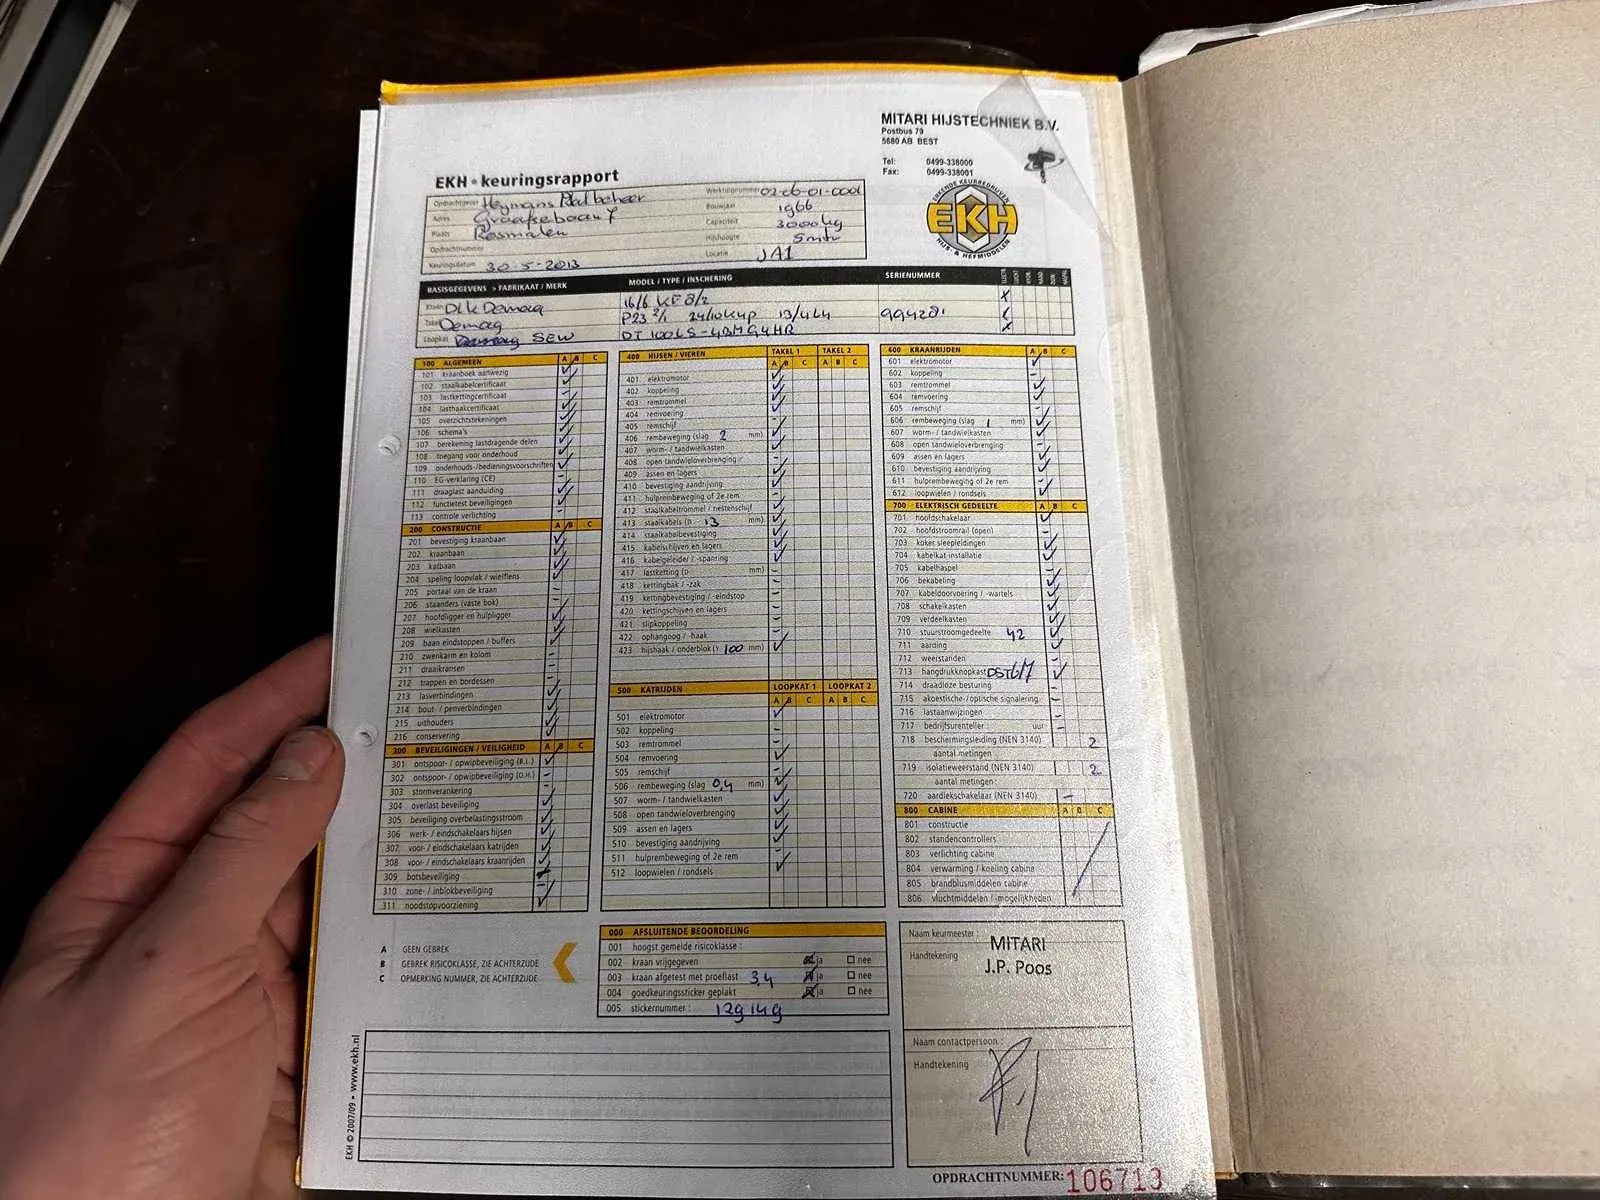 MITARI HIJSTECHNIEK B.V.
Postbus 79
5680 AB BEST
Tel: 0499-338000
Fax: 0499-338001
EKH - keuringsrapport
ERKENDE KEURBEDRIJVEN
EKH
HIJS- & HEFMIDDELEN
Opdrachtgever Heymans
Adres
Plaats Rosmalen
Opdrachtnummer
Keuringsdatum 30-5-2013
Werktuignummer 02-06-01-0001
Bouwjaar 1966
Capaciteit 3000kg
Hijshoogte 5mtr
Locatie JA1
BASISGEGEVENS > FABRIKAAT / MERK MODEL / TYPE / INSCHERING SERIENUMMER
Kraan DLK Demag 16/6 KE
Takel Demag P23 2/1 24/10KUP 13/4L4
Loopkat SEW DT 100LS-4BMG4HR
100 ALGEMEEN A B C
101 kraanboek aanwezig
102 staalkabelcertificaat
103 lastkettingcertificaat
104 lasthaakcertificaat
105 overzichtstekeningen
106 schema's
107 berekening lastdragende delen
108 toegang voor onderhoud
109 onderhouds-/bedieningsvoorschriften
110 EG-verklaring (CE)
111 draaglast aanduiding
112 functietest beveiligingen
113 controle verlichting
200 CONSTRUCTIE A B C
201 bevestiging kraanbaan
202 kraanbaan
203 katbaan
204 speling loopvlak / wielflens
205 portaal van de kraan
206 staanders (vaste bok)
207 hoofdligger en hulpligger
208 wielkasten
209 baan eindstoppen / buffers
210 zwenkarm en kolom
211 draaikransen
212 trappen en bordessen
213 lasverbindingen
214 bout- / penverbindingen
215 uithouders
216 conservering
300 BEVEILIGINGEN / VEILIGHEID A B C
301 ontspoor- / opwipbeveiliging (B.L.)
302 ontspoor- / opwipbeveiliging (O.H.)
303 stormverankering
304 overlast beveiliging
305 beveiliging overbelastingsstroom
306 werk- / eindschakelaars hijsen
307 voor- / eindschakelaars katrijden
308 voor- / eindschakelaars kraanrijden
309 botsbeveiliging
310 zone- / inblokbeveiliging
311 noodstopvoorziening
400 HIJSEN / VIEREN TAKEL 1 TAKEL 2
A B C A B C
401 elektromotor
402 koppeling
403 remtrommel
404 remvoering
405 remschijf
406 rembeweging (slag 2 mm)
407 worm- / tandwielkasten
408 open tandwieloverbrenging
409 assen en lagers
410 bevestiging aandrijving
411 hulprembeweging of 2e rem
412 staalkabeltrommel / nestenschijf
413 staalkabels (D 13 mm)
414 staalkabelbevestiging
415 kabelschijven en lagers
416 kabelgeleider / -spanning
417 lastketting (D mm)
418 kettingbak / -zak
419 kettingbevestiging / -eindstop
420 kettingschijven en lagers
421 slipkoppeling
422 ophangoog / -haak
423 hijshaak / onderblok (Y 100 mm)
500 KATRIJDEN LOOPKAT 1 LOOPKAT 2
A B C A B C
501 elektromotor
502 koppeling
503 remtrommel
504 remvoering
505 remschijf
506 rembeweging (slag 0,4 mm)
507 worm- / tandwielkasten
508 open tandwieloverbrenging
509 assen en lagers
510 bevestiging aandrijving
511 hulprembeweging of 2e rem
512 loopwielen / rondsels
600 KRAANRIJDEN A B C
601 elektromotor
602 koppeling
603 remtrommel
604 remvoering
605 remschijf
606 rembeweging (slag 1 mm)
607 worm- / tandwielkasten
608 open tandwieloverbrenging
609 assen en lagers
610 bevestiging aandrijving
611 hulprembeweging of 2e rem
612 loopwielen / rondsels
700 ELEKTRISCH GEDEELTE A B C
701 hoofdschakelaar
702 hoofdstroomrail (open)
703 koker sleepleidingen
704 kabelkat installatie
705 kabelhaspel
706 bekabeling
707 kabeldoorvoering / -wartels
708 schakelkasten
709 verdeelkasten
710 stuurstroomgedeelte 42
711 aarding
712 weerstanden
713 hangdrukknopkast DST6/7
714 draadloze besturing
715 akoestische-/optische signalering
716 lastaanwijzingen
717 bedrijfsurenteller uur
718 beschermingsleiding (NEN 3140)
aantal metingen 2
719 isolatieweerstand (NEN 3140)
aantal metingen: 2
720 aardlekschakelaar (NEN 3140)
800 CABINE A B C
801 constructie
802 standencontrollers
803 verlichting cabine
804 verwarming / koeling cabine
805 brandblusmiddelen cabine
806 vluchtmiddelen / -mogelijkheden
A GEEN GEBREK
B GEBREK RISICOKLASSE, ZIE ACHTERZIJDE
C OPMERKING NUMMER, ZIE ACHTERZIJDE
000 AFSLUITENDE BEOORDELING
001 hoogst gemelde risicoklasse :
002 kraan vrijgegeven ja nee
003 kraan afgetest met proeflast 3,4 ja nee
004 goedkeuringssticker geplakt ja nee
005 stickernummer : 129149
Naam keurmeester :
MITARI
Handtekening
J.P. Poos
Naam contactpersoon :
Handtekening
EKH © 2007/09 • www.ekh.nl
OPDRACHTNUMMER: 106713